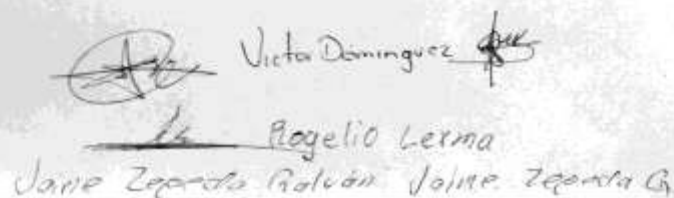 Victor Dominguez
Rogelio Lerma
Jaime Zepeda Galván Jaime Zepeda G